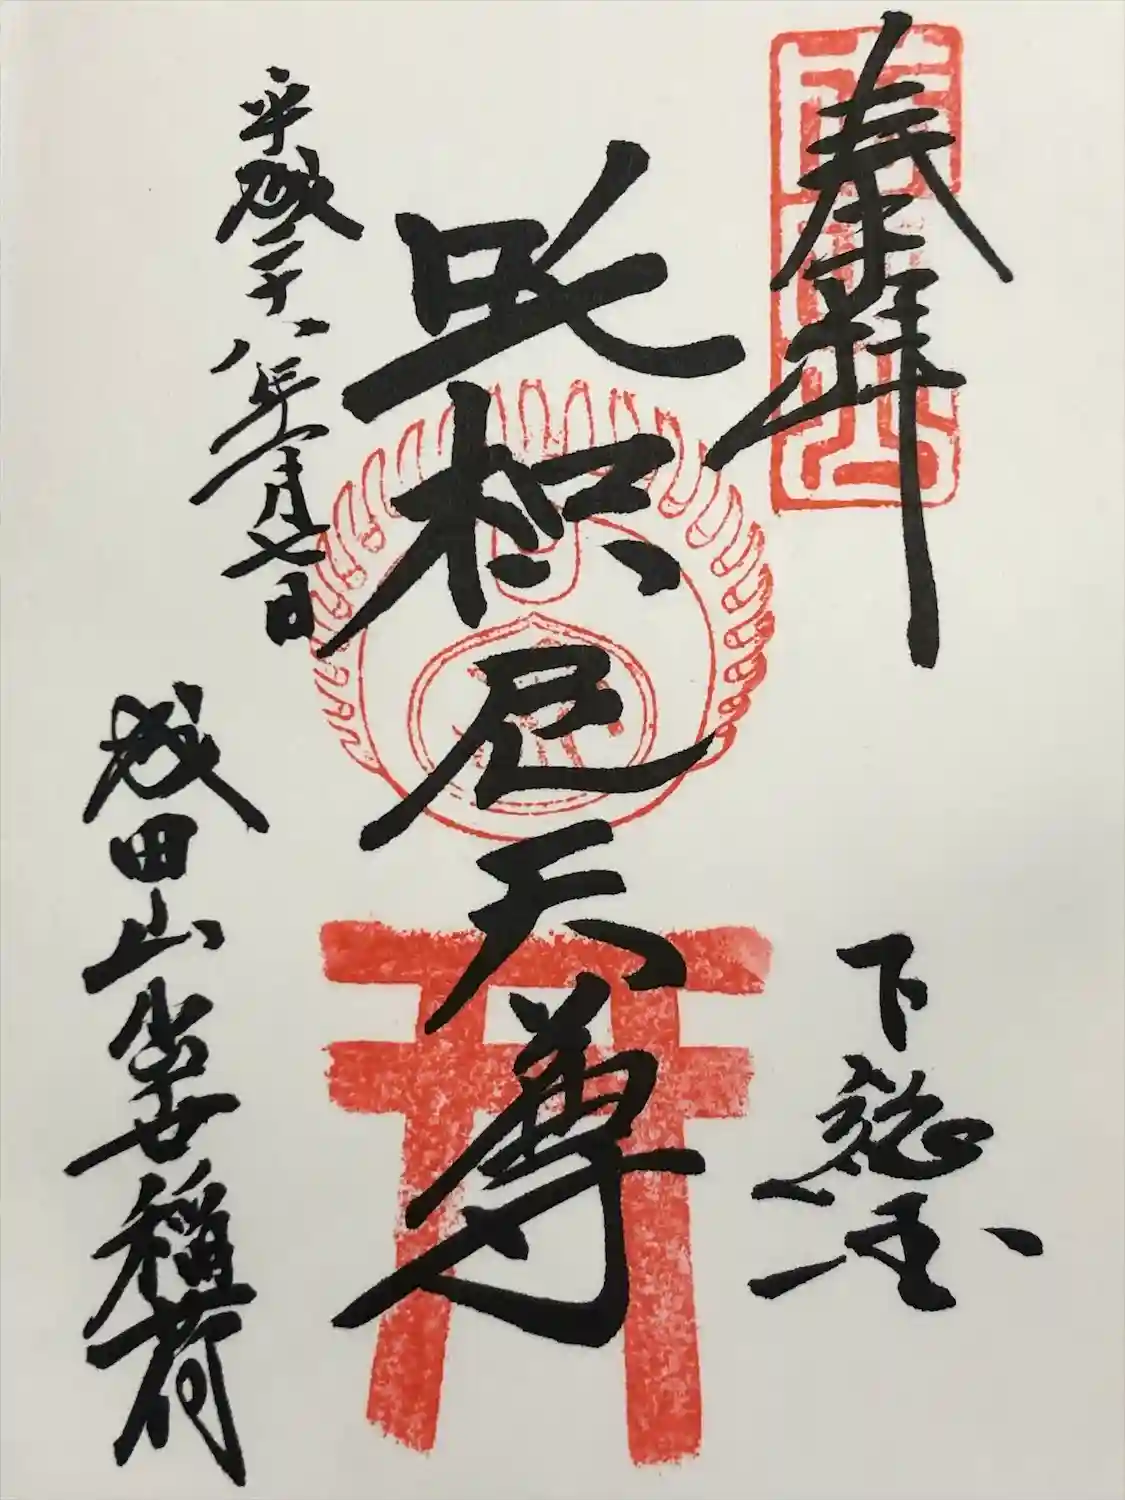 奉拝
下総国
吒枳尼天尊
平成二十八年六月七日
成田山出世稲荷